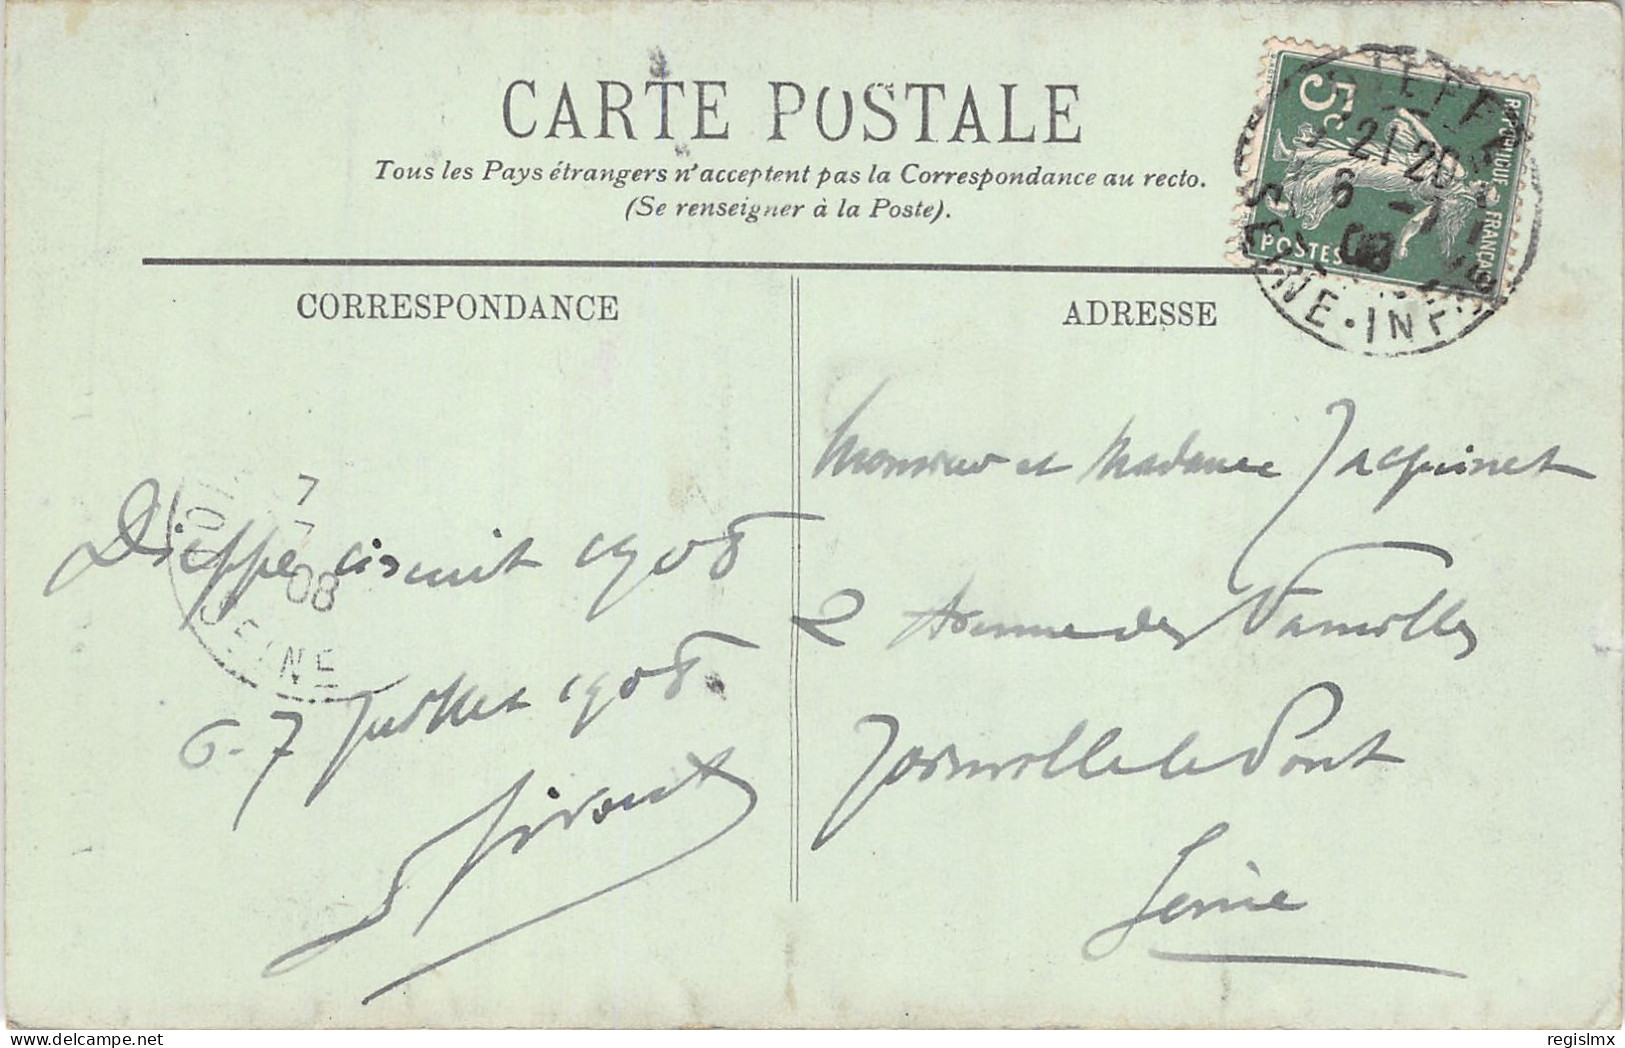 CARTE POSTALE
Tous les Pays étrangers n'acceptent pas la Correspondance au recto.
(Se renseigner à la Poste).
5c
REPUBLIQUE FRANÇAISE
POSTES
DIEPPE
21 20
6 - 7
08
SEINE-INF
CORRESPONDANCE
ADRESSE
Dieppe circuit 1908
6-7 Juillet 1908
7
7
08
SEINE
Monsieur et Madame Jacquinet
2 Avenue des Familles
Joinville le Pont
Seine
regislmx
delcampe.net